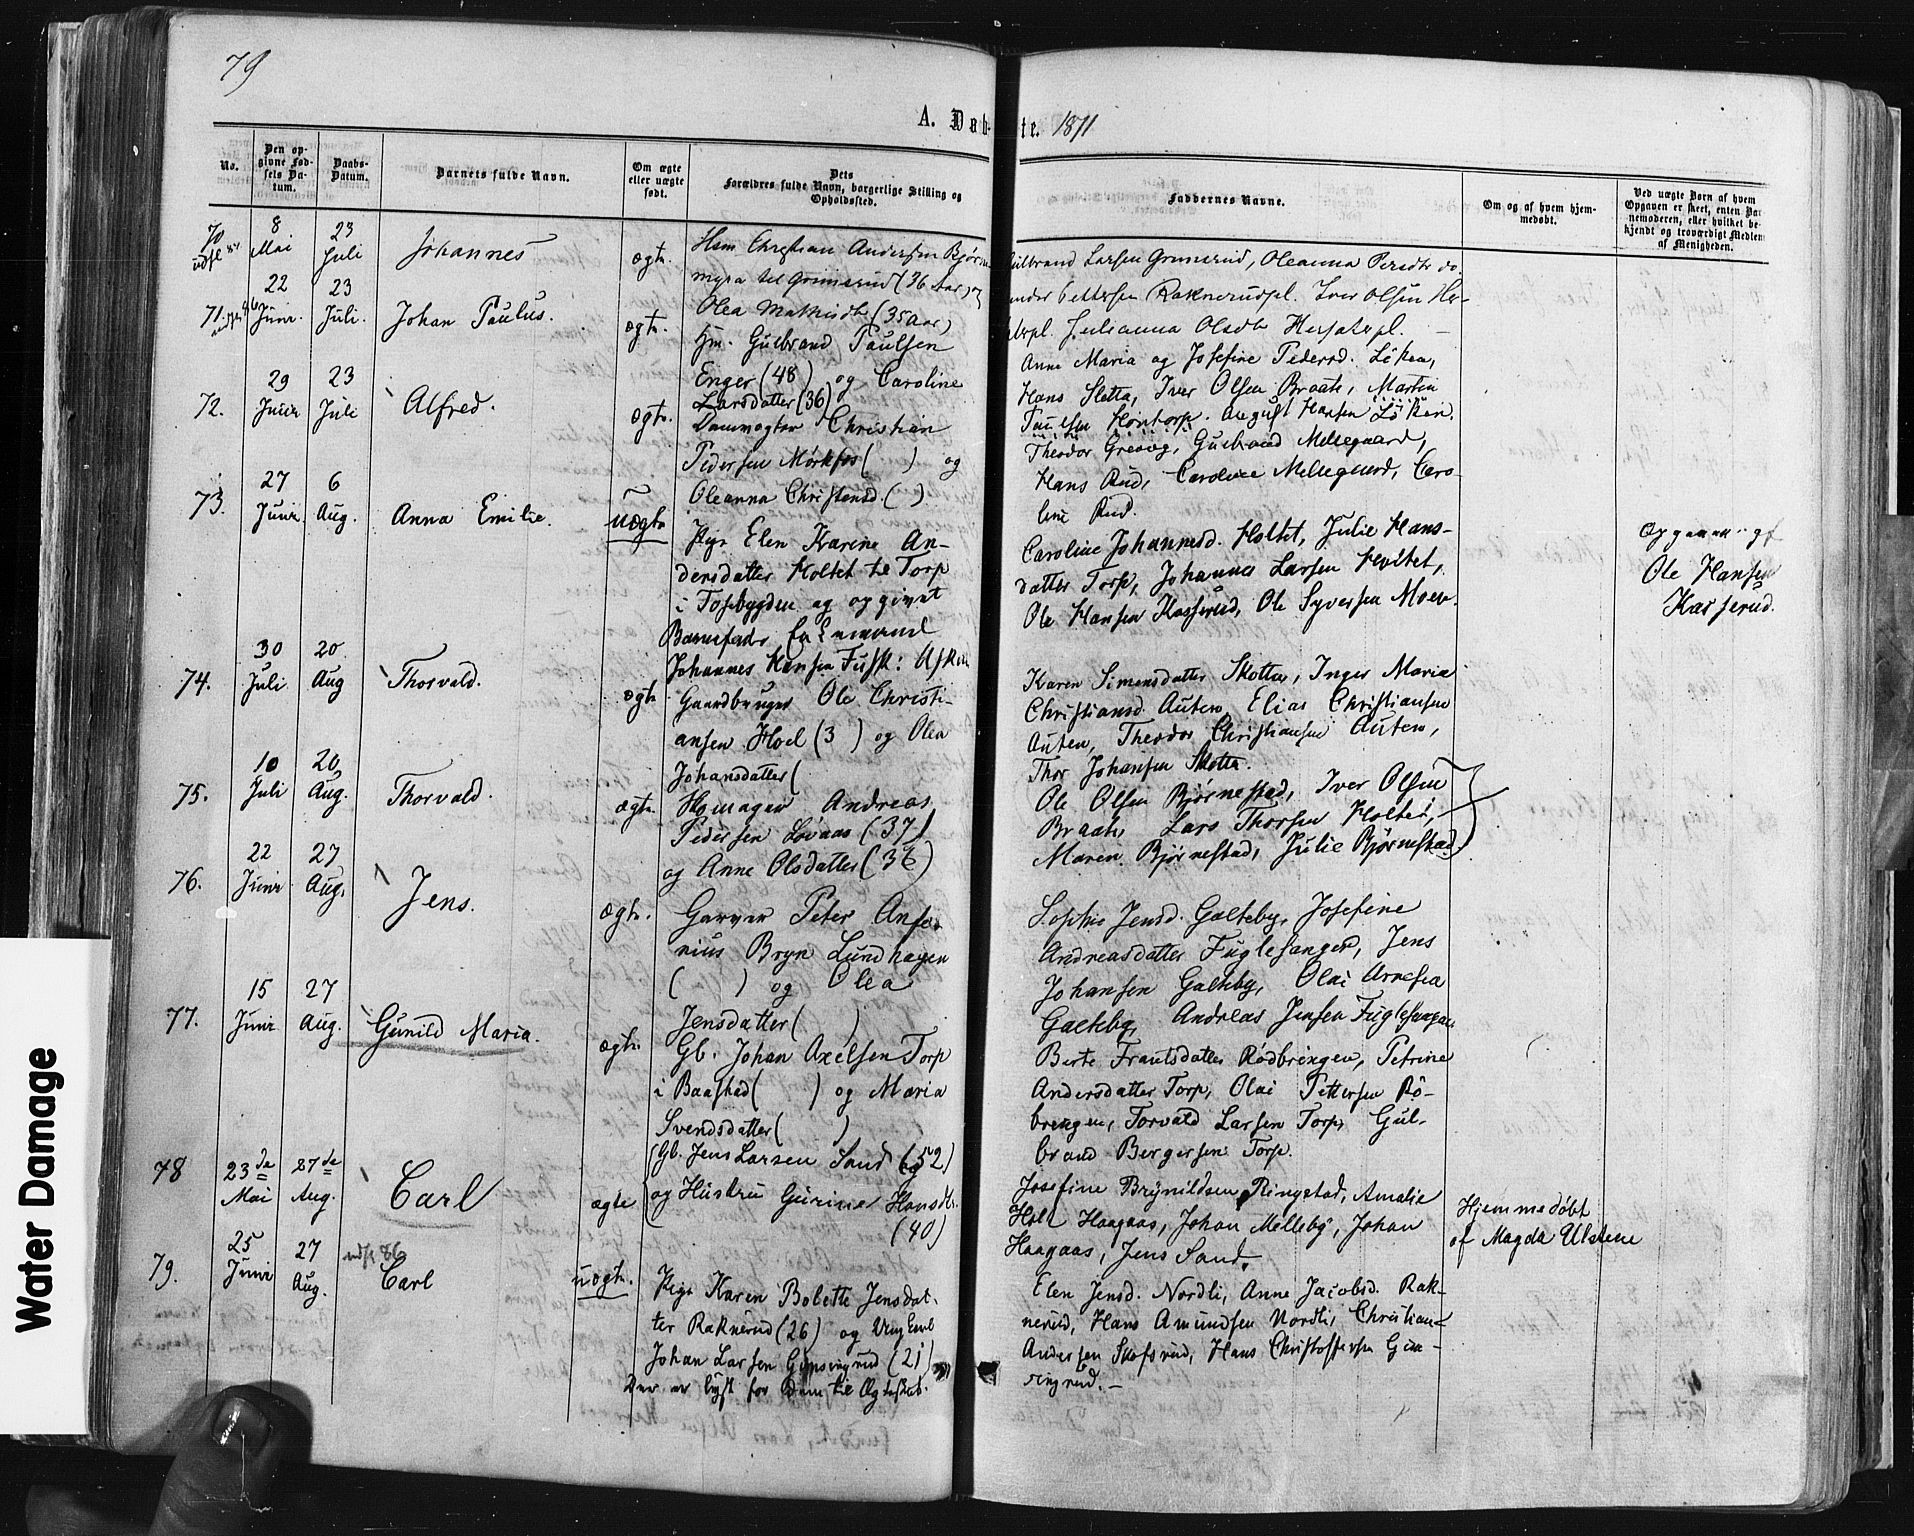 79
A. Dab- te. 1871
No.
Den op-
givne Fød-
sels Da-
tum.
Daabs-
Datum.
Barnets fulde Navn.
Om ægte
eller uægte
født.
Dets
Forældres fulde Navn, borgerlige Stilling og
Opholdssted.
Faddernes Navne.
Om og af hvem hjem-
medøbt.
Ved uægte Børn af hvem
Opgaven er skeet, enten Bar
nemoderen, eller hvilket be-
kjendt og troværdigt Medlem
af Menigheden.
70
8
Mai
23
Juli
Johannes
ægte.
Hsm Christian Andersen Bjørne
myra til Grimsrud (36 Aar) og
Olea Mathisdt (35 Aar)
Gulbrand Larsen Grimsrud, Oleanna Persdtr
Pettersen Raknerudpl. Iver Olsen Her-
Julianna Olsdt
71.
22
Juni.
23
Juli.
Johan Paulus.
ægte.
Hm. Gulbrand Paulsen
Enger (48) og Caroline
Larsdatter (36)
Anne Maria og Josefine Pedersd. Løken,
Hans Sletta, Iver Olsen Braate, Martin
Paulsen Høntorp. August Hansen Løken.
72.
29
Juni
23
Juli
Alfred.
ægte.
Christian
Pedersen Mørkfos ( ) og
Oleanna Christensd. ( )
Theodor Grevog, Gulbrand Mellegaard,
Hans Rud, Caroline Mellegaard, Caro-
line Rud.
73.
27
Juni.
6
Aug.
Anna Emilie.
uægte
Pige Elen Karine An-
dersdatter Holtet te Torp
i Tosebygden og opgivet
Barnefader Enkemand
Johannes Hansen Fusk: Askim
Caroline Johannesd. Holtet, Julie Hans-
datter Torp, Johannes Larsen Holtet,
Ole Hansen Kasserud, Ole Syversen Moen.
Opgaven
Ole Hansen
Kasserud.
74.
30
Juli
20
Aug
Thorvald.
ægte
Gaardbruger Ole Christi-
ansen Hoel (3 ) og Olea
Johansdatter (
Karen Simensdatter Skotta, Inger Maria
Christiansd. Auten, Elias Christiansen
Auten, Theodor Christiansen Auten,
Thor Johansen Skotta.
75.
10
Juli
20
Aug.
Thorvald.
ægte.
Andreas
Pedersen Løvaas (37)
og Anne Olsdatter (36)
Ole Olsen Bjørnestad, Iver Olsen
Braate, Lars Thorsen Holtet,
Maren Bjørnestad, Julie Bjørnestad.
76.
22
Juni
27
Aug.
Jens.
ægte.
Garver Peter Anse-
nius Bryn Lundhagen
( ) og Olea
Jensdatter ( )
Sophie Jensd. Galteby, Josefine
Andreasdatter Fuglesangen, Jens
Johansen Galteby, Olai Arnesen
Galteby, Andreas Jensen Fuglesangen
77.
15
Juni
27
Aug.
Gunild Maria.
ægte.
Gb. Johan Axelsen Torp
i Baastad ( ) og Maria
Svendsdatter ( )
Berte Frantsdatter Rødbringen, Petrine
Andersdatter Torp, Olai Pettersen Rø-
bringen, Torvald Larsen Torp, Gul-
brand Bergersen Torp.
78
23de
Mai
27de
Aug.
Carl
ægte
Gb. Jens Larsen Sand (52)
og Hustru Gurine Hansdtr.
(40)
Josefine Brynildsen Ringstad, Amalie
Holt Haagaas, Johan Melleby, Johan
Haagaas, Jens Sand.
Hjemmedøbt
af Magda Ulstene
79.
25
Juni
27
Aug.
Carl
uægte.
Pige Karen Bolette Jensdat-
ter Raknerud (26) og Ung Karl
Johan Larsen (21)
Der er lyst for Dem til Ægteskab.
Elen Jensd. Nordli, Anne Jacobsd. Rak-
nerud, Hans Amundsen Nordli, Christian
Andersen Skofsrud, Hans Christoffersen Gun-
singrud.
Water Damage